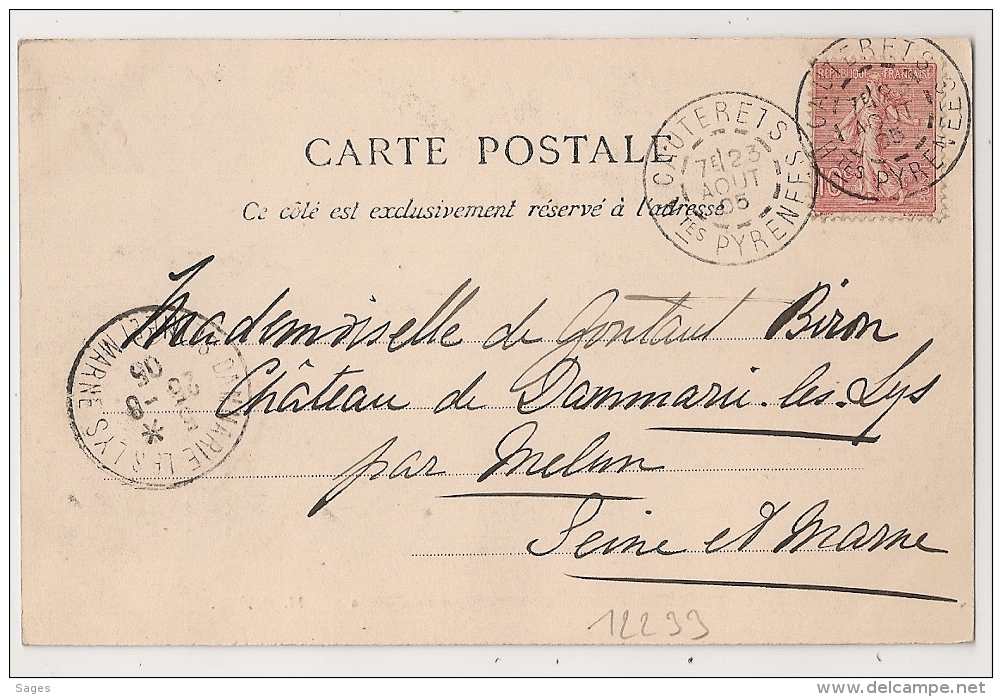 REPUBLIQUE FRANÇAISE
10
CAUTERETS
7E 23
AOUT
05
HTES PYRENEES
CAUTERETS
7E
AOUT
05
HTES PYRENEES
CARTE POSTALE
Ce côté est exclusivement réservé à l'adresse
Mademoiselle de Gontaut Biron
Château de Dammarie-les-Lys
par Melun
Seine et Marne
DAMMARIE LES LYS
MARNE
25
8
05
12233
Sages
delcampe.net